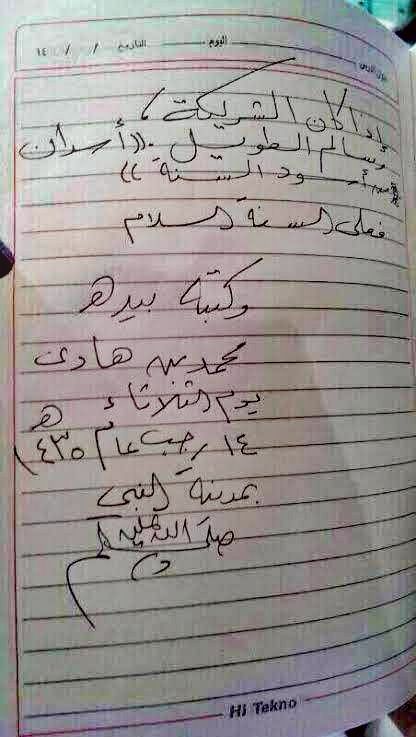 اليوم التاريخ / / ١٤
إذا كان الشريكة،
وسالم الطويل: ((أسدان
من أسود السنة))
فعلى السنة السلام
وكتبه بيده
محمد بن هادي
يوم الثلاثاء
١٤ رجب عام ١٤٣٥ هـ
بمدينة النبي
صلى الله عليه
وسلم
Hi Tekno